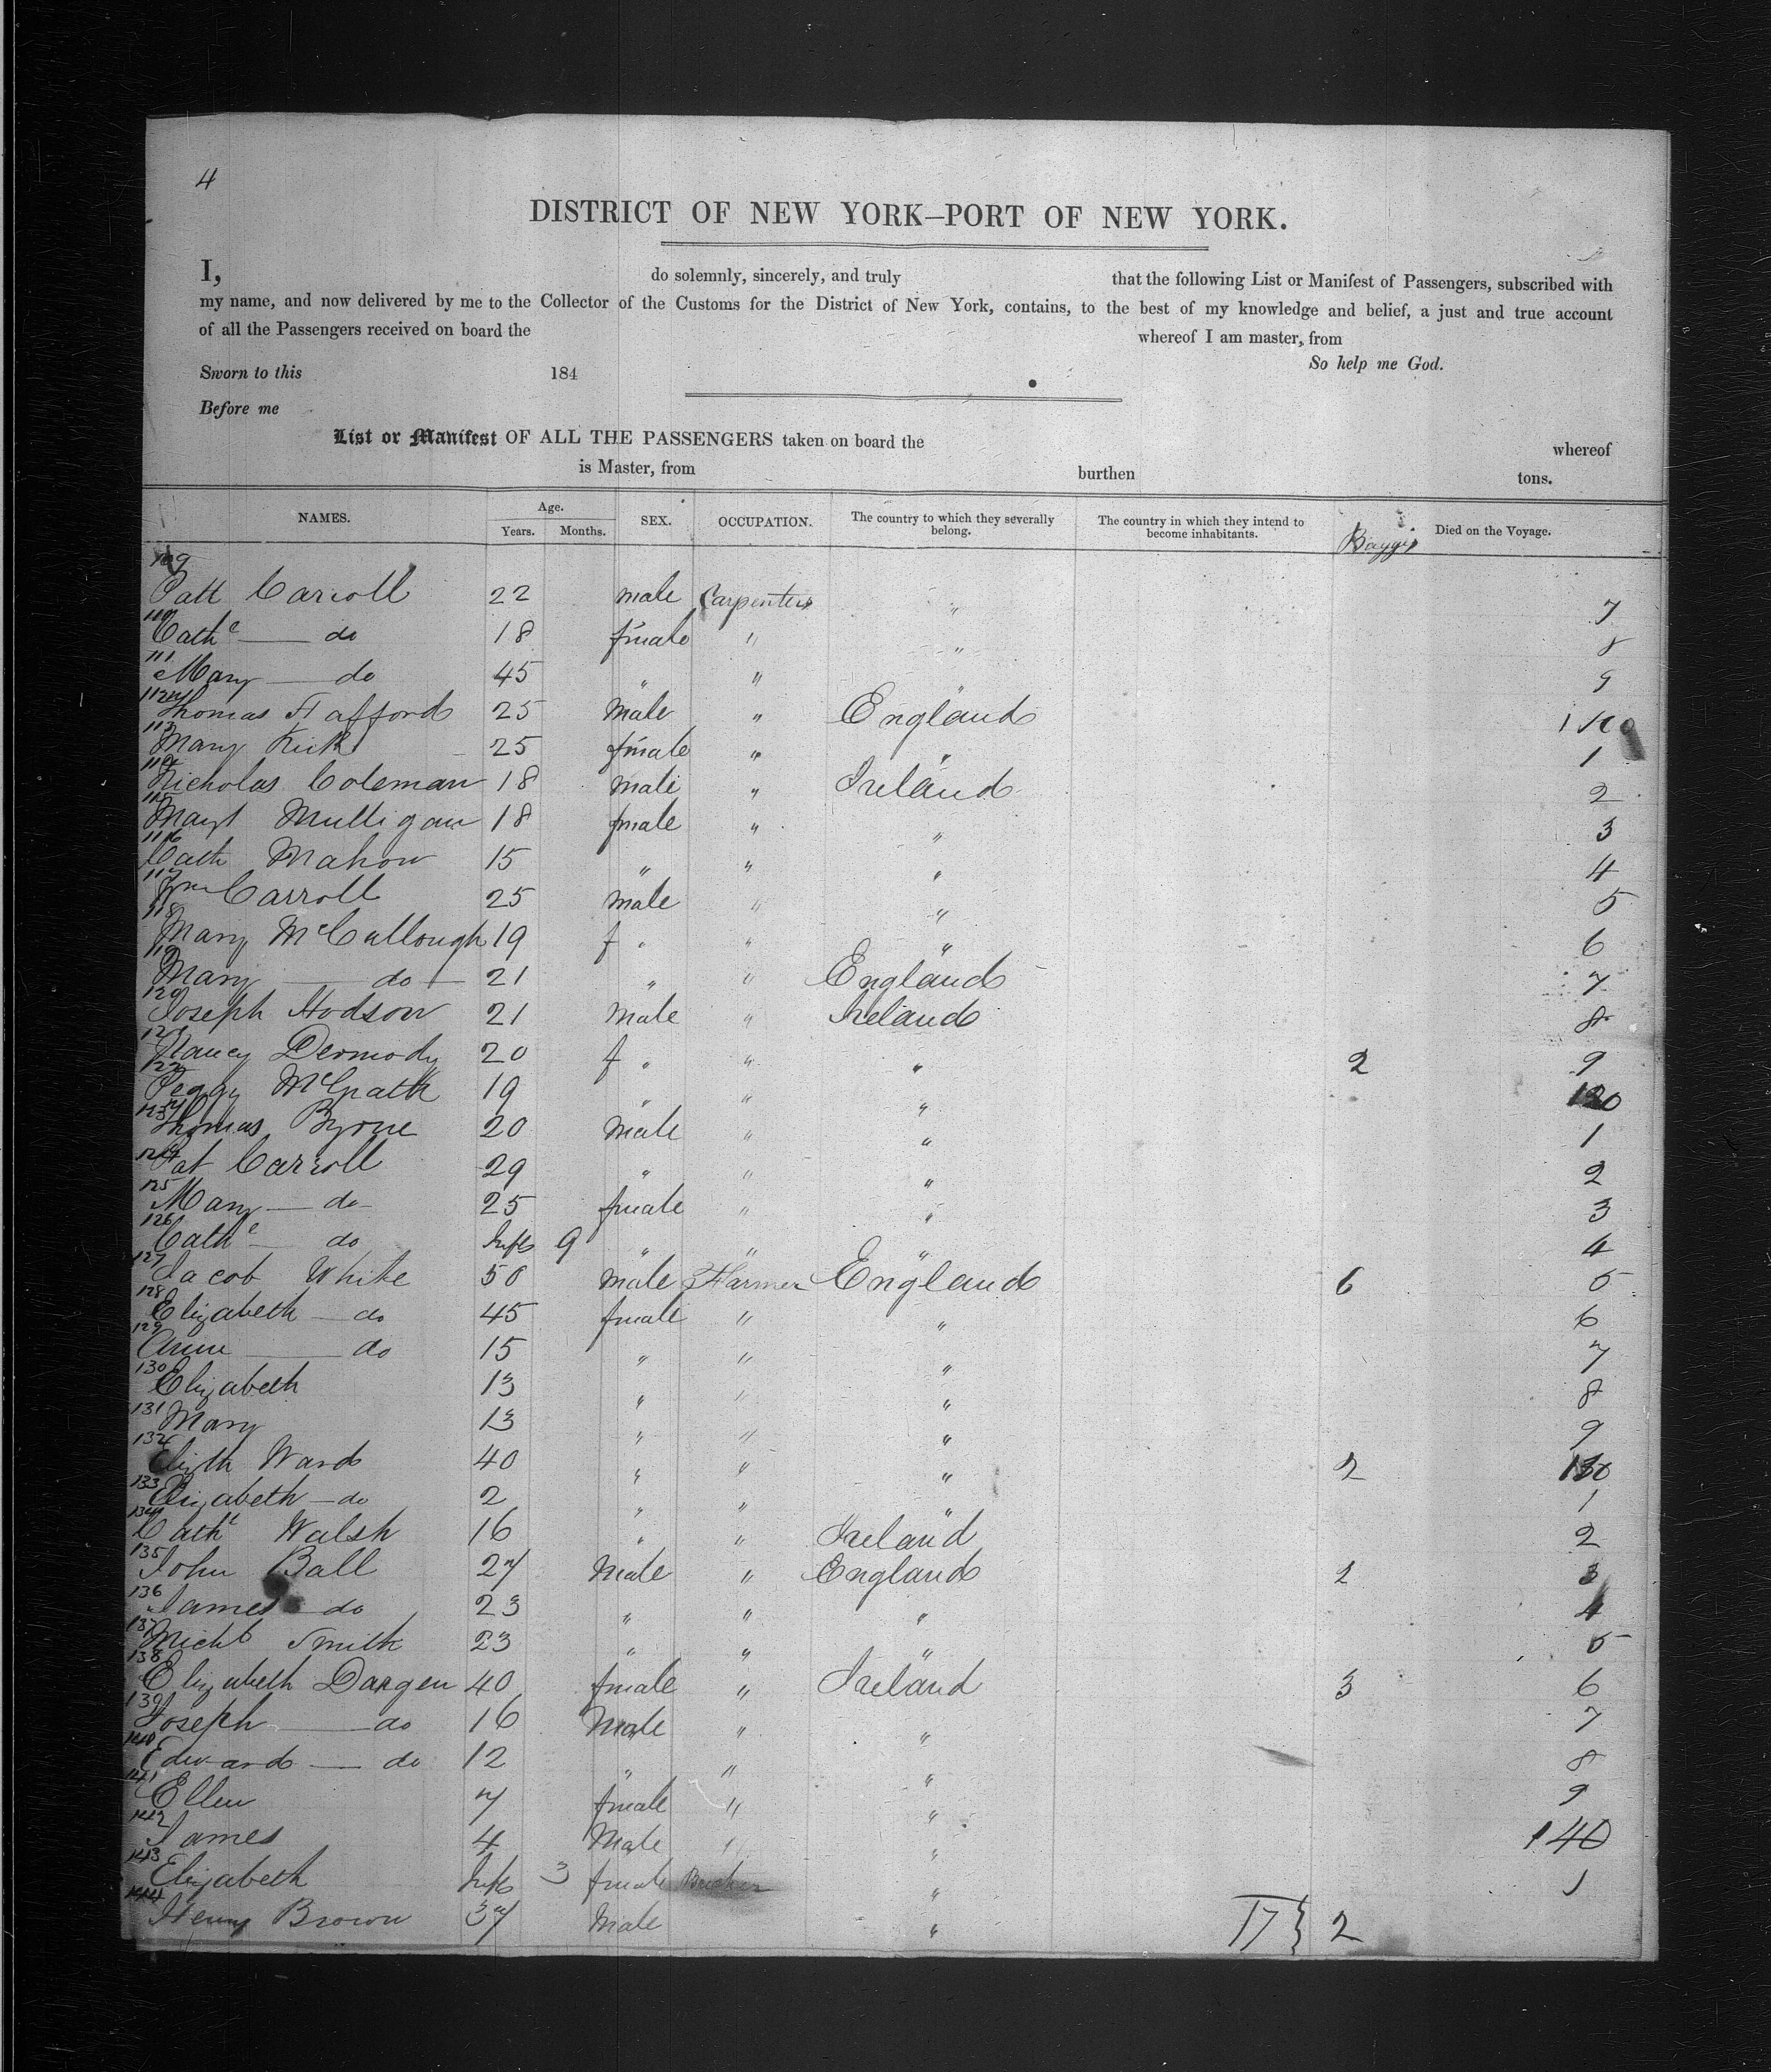 4
DISTRICT OF NEW YORK–PORT OF NEW YORK.
I, do solemnly, sincerely, and truly that the following List or Manifest of Passengers, subscribed with
my name, and now delivered by me to the Collector of the Customs for the District of New York, contains, to the best of my knowledge and belief, a just and true account
of all the Passengers received on board the whereof I am master, from
So help me God.
Sworn to this 184
Before me
List or Manifest OF ALL THE PASSENGERS taken on board the whereof
is Master, from burthen tons.
NAMES. Age. Years. Months. SEX. OCCUPATION. The country to which they severally belong. The country in which they intend to become inhabitants. Died on the Voyage.
109 Patt Carroll 22 male Carpenters " 7
110 Cathe — do 18 fmale " " 8
111 Mary — do 45 " " 9
112 Thomas Stafford 25 Male " England 110
113 Mary Kirk 25 fmale " " 1
114 Nicholas Coleman 18 male " Ireland 2
115 Margt Mulligan 18 fmale " " 3
116 Cath Mahon 15 " " " 4
117 Wm Carroll 25 male " " 5
118 Mary McCullough 19 f " " " 6
119 Mary — do — 21 " " England 7
120 Joseph Hodson 21 Male " Ireland 8
121 Nancy Dermody 20 f " " " 2 9
122 Peggy McGrath 19 " " " 120
123 Thomas Byrne 20 Male " " 1
124 Pat Carroll 29 " " " 2
125 Mary — do — 25 fmale " " 3
126 Cathe — do Infts 9 " " " 4
127 Jacob White 50 male Farmer England 6 5
128 Elizabeth — do 45 fmale " " 6
129 Anne — do 15 " " " 7
130 Elizabeth 13 " " " 8
131 Mary 13 " " " 9
132 Elizth Ward 40 " " " 2 130
133 Elizabeth — do 2 " " " 1
134 Cathe Walsh 16 " " Ireland 2
135 John Ball 27 Male " England 2 3
136 James do 23 " " " 4
137 Michl Smith 23 " " " 5
138 Elizabeth Dargen 40 fmale " Ireland 3 6
139 Joseph — do 16 Male " " 7
140 Edward — do 12 " " " 8
141 Ellen 7 fmale " " 9
142 James 4 Male " " 140
143 Elizabeth Inft 3 fmale " 1
144 Henry Brown 37 Male " 17 } 2